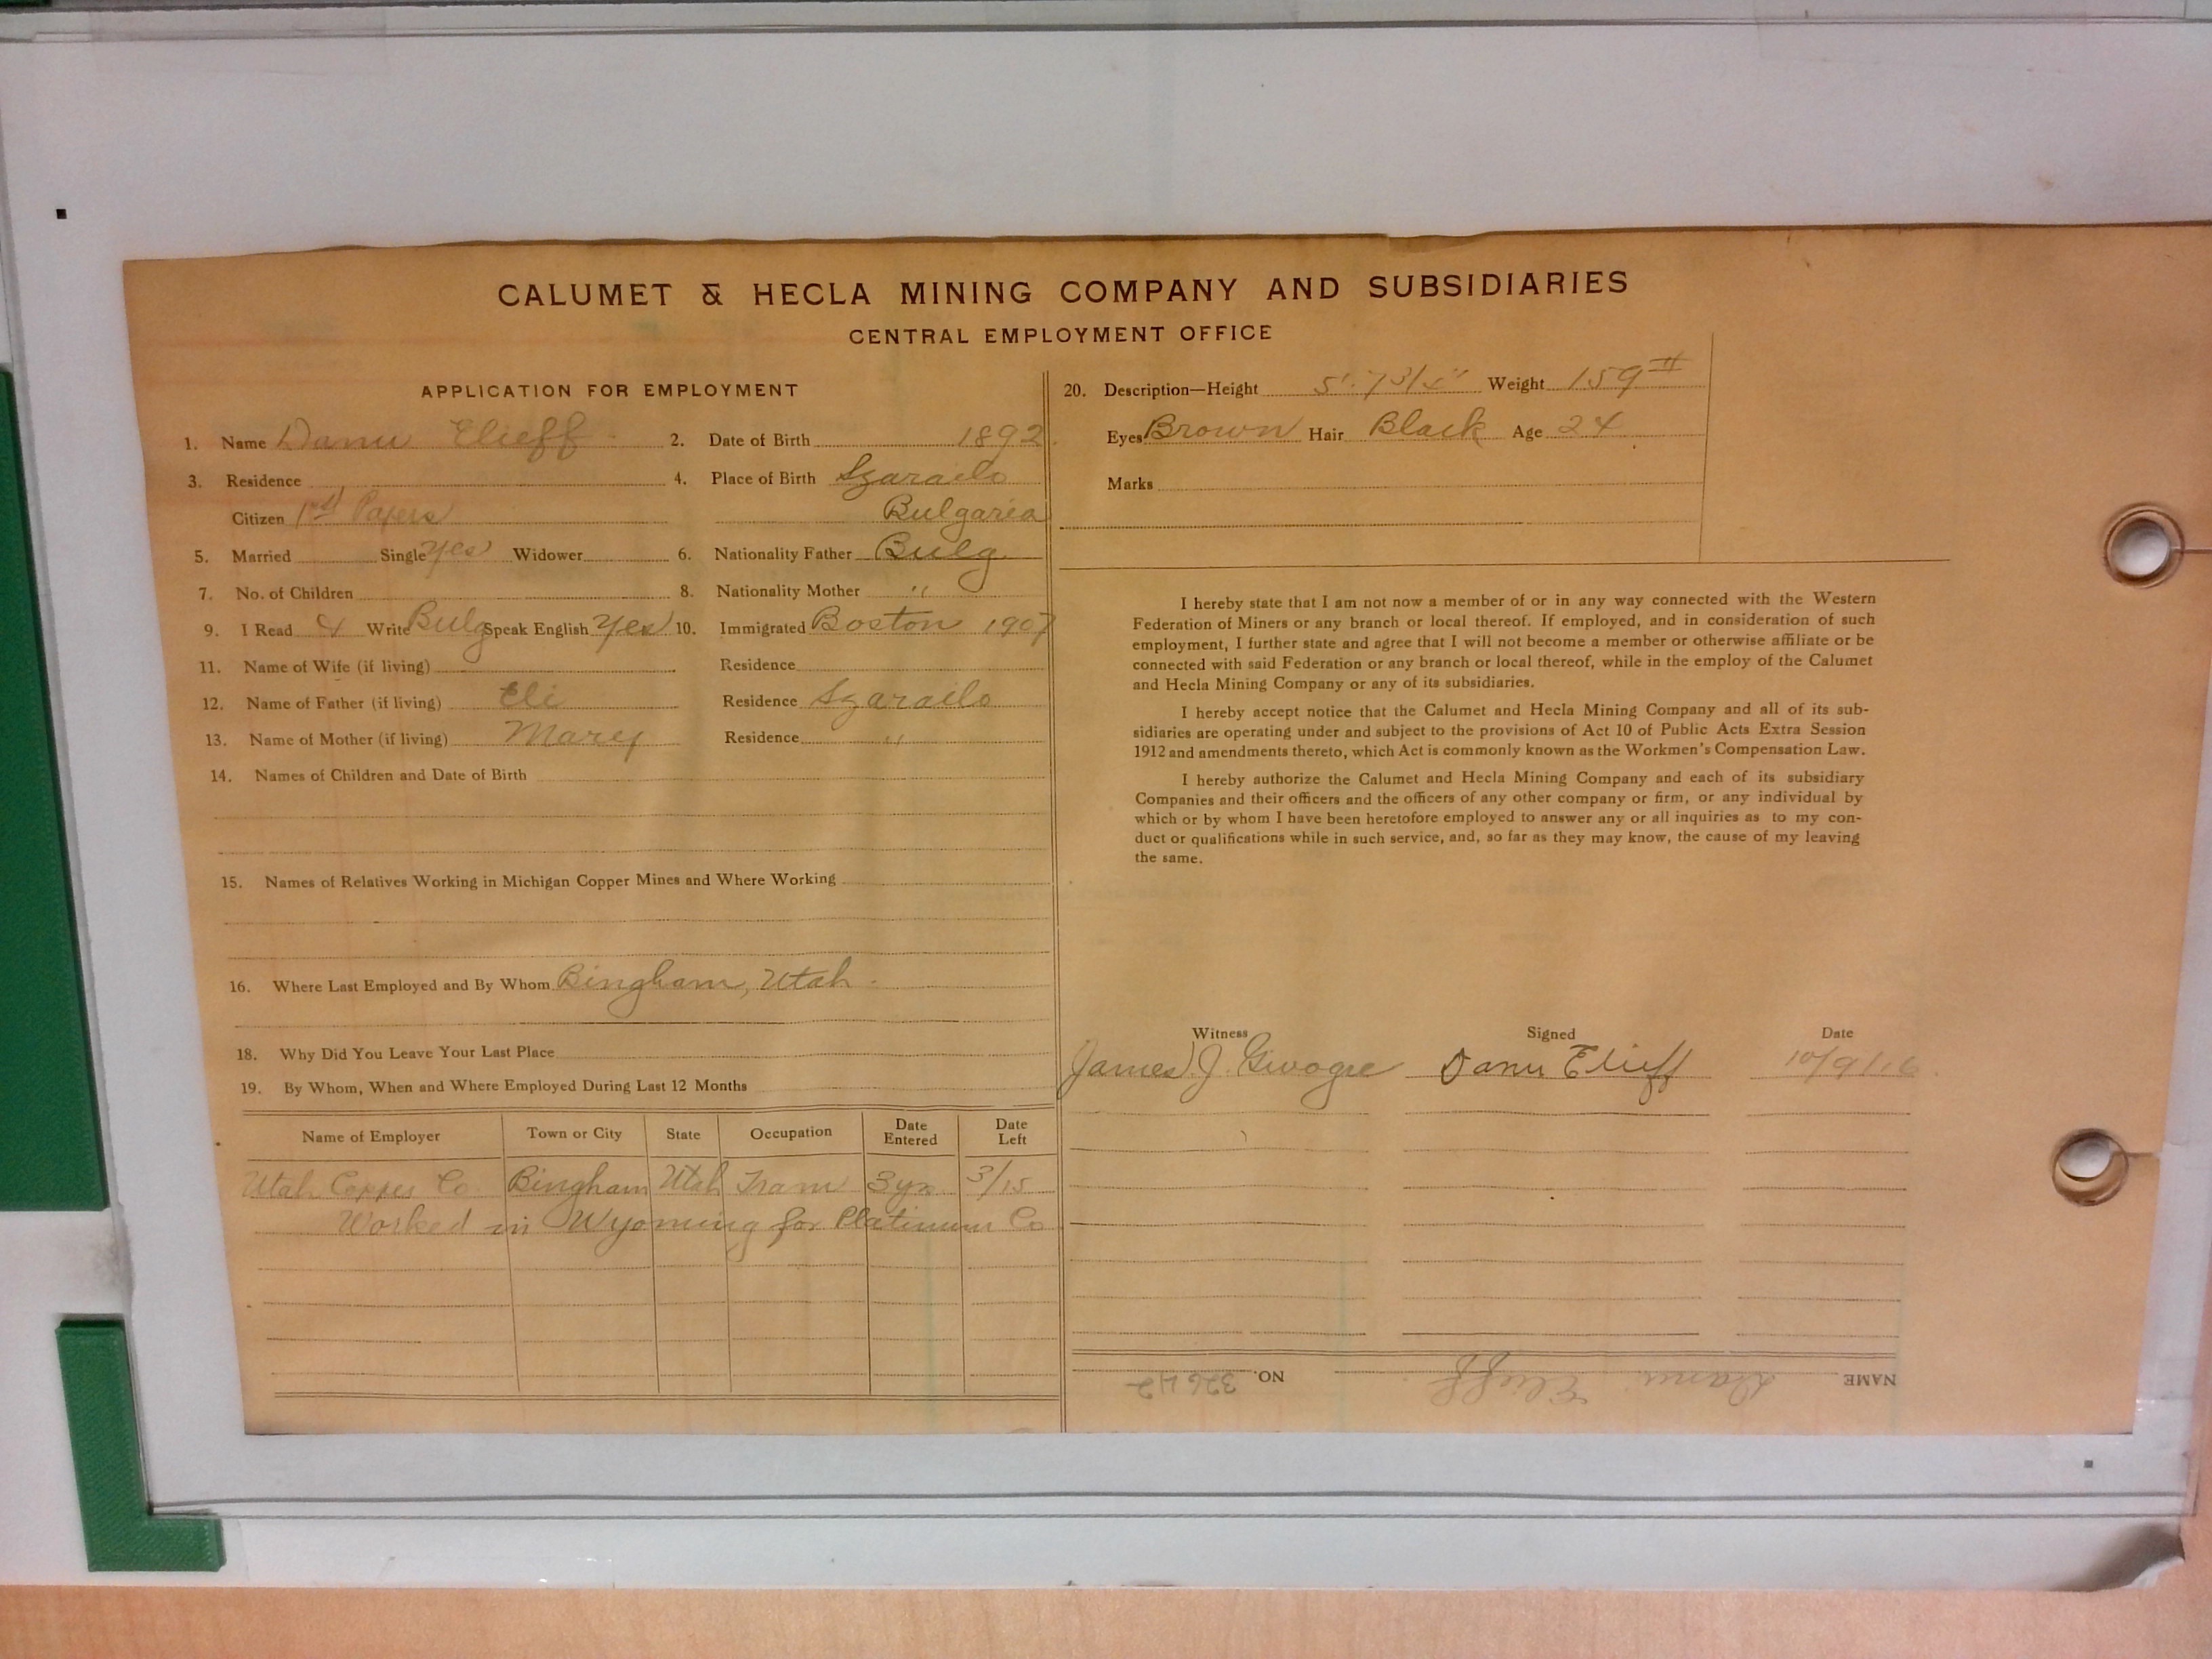 CALUMET & HECLA MINING COMPANY AND SUBSIDIARIES
CENTRAL EMPLOYMENT OFFICE
APPLICATION FOR EMPLOYMENT
1. Name Danu Elieff 2. Date of Birth 1892
3. Residence 4. Place of Birth Szarailo
Citizen 1st Papers Bulgaria
5. Married Single Yes Widower 6. Nationality Father Bulg.
7. No. of Children 8. Nationality Mother "
9. I Read & Write Bulg Speak English Yes 10. Immigrated Boston 1907
11. Name of Wife (if living) Residence
12. Name of Father (if living) Eli Residence Szarailo
13. Name of Mother (if living) Mary Residence "
14. Names of Children and Date of Birth
15. Names of Relatives Working in Michigan Copper Mines and Where Working
16. Where Last Employed and By Whom Bingham, Utah.
18. Why Did You Leave Your Last Place
19. By Whom, When and Where Employed During Last 12 Months
Name of Employer Town or City State Occupation Date Entered Date Left
Utah Copper Co Bingham Utah Tram 3 yrs 3/15
Worked in Wyoming for Platinum Co
20. Description—Height 5' 7 3/4" Weight 159 #
Eyes Brown Hair Black Age 24
Marks
I hereby state that I am not now a member of or in any way connected with the Western
Federation of Miners or any branch or local thereof. If employed, and in consideration of such
employment, I further state and agree that I will not become a member or otherwise affiliate or be
connected with said Federation or any branch or local thereof, while in the employ of the Calumet
and Hecla Mining Company or any of its subsidiaries.
I hereby accept notice that the Calumet and Hecla Mining Company and all of its sub-
sidiaries are operating under and subject to the provisions of Act 10 of Public Acts Extra Session
1912 and amendments thereto, which Act is commonly known as the Workmen's Compensation Law.
I hereby authorize the Calumet and Hecla Mining Company and each of its subsidiary
Companies and their officers and the officers of any other company or firm, or any individual by
which or by whom I have been heretofore employed to answer any or all inquiries as to my con-
duct or qualifications while in such service, and, so far as they may know, the cause of my leaving
the same.
Witness Signed Date
James J. Danu Elieff 10/9/16
NAME Danu Elieff. NO. 32642